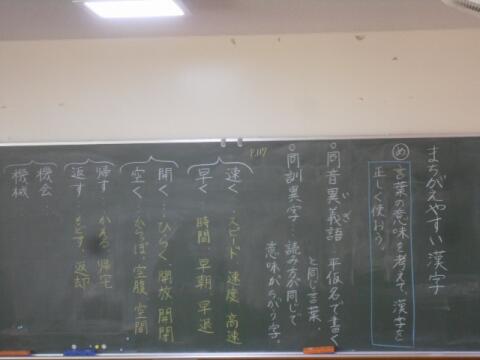 まちがえやすい漢字
め
言葉の意味を考えて、漢字を
正しく使おう。
◦同音異義語…平仮名で書く
いぎ
と同じ言葉、
◦同訓異字…読み方が同じで
意味がちがう字。
P.117
速く…スピード 速度 高速
早く…時間 早期 早退
開く…ひらく 開放 開閉
空く…からっぽ 空腹 空間
帰す…かえる 帰宅
返す…もどす 返却
機会…
機械…